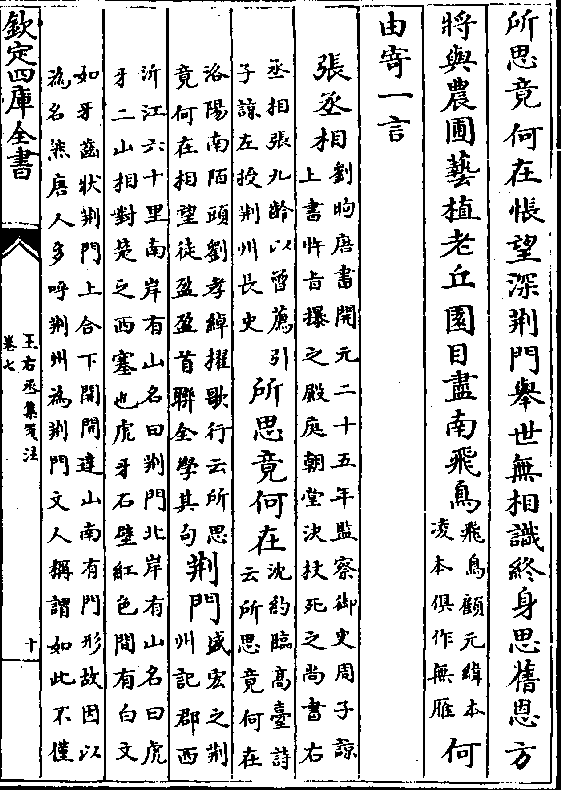 所思竟何在悵望深荆門舉世無相識終身思舊恩方
將與農圃藝植老丘園目盡南飛鳥飛鳥顧元緯本
凌本俱作無雁何
由寄一言
張丞相劉昫唐書開元二十五年監察御史周子諒
上書忤旨㩧之殿庭朝堂決杖死之尚書右
丞相張九齡以曾薦引
子諒左授荆州長史所思竟何在沈約臨髙臺詩
云所思竟何在
洛陽南陌頭劉孝綽擢歌行云所思
竟何在相望徒盈盈首聯全學其句荆門盛宏之荆
州記郡西
沂江六十里南岸有山名曰荆門北岸有山名曰虎
牙二山相對楚之西塞也虎牙石壁紅色間有白文
如牙齒狀荆門上合下開開達山南有門形故因以
為名然唐人多呼荆州為荆門文人稱謂如此不僅
欽定四庫全書
王右丞集箋注
卷七
十